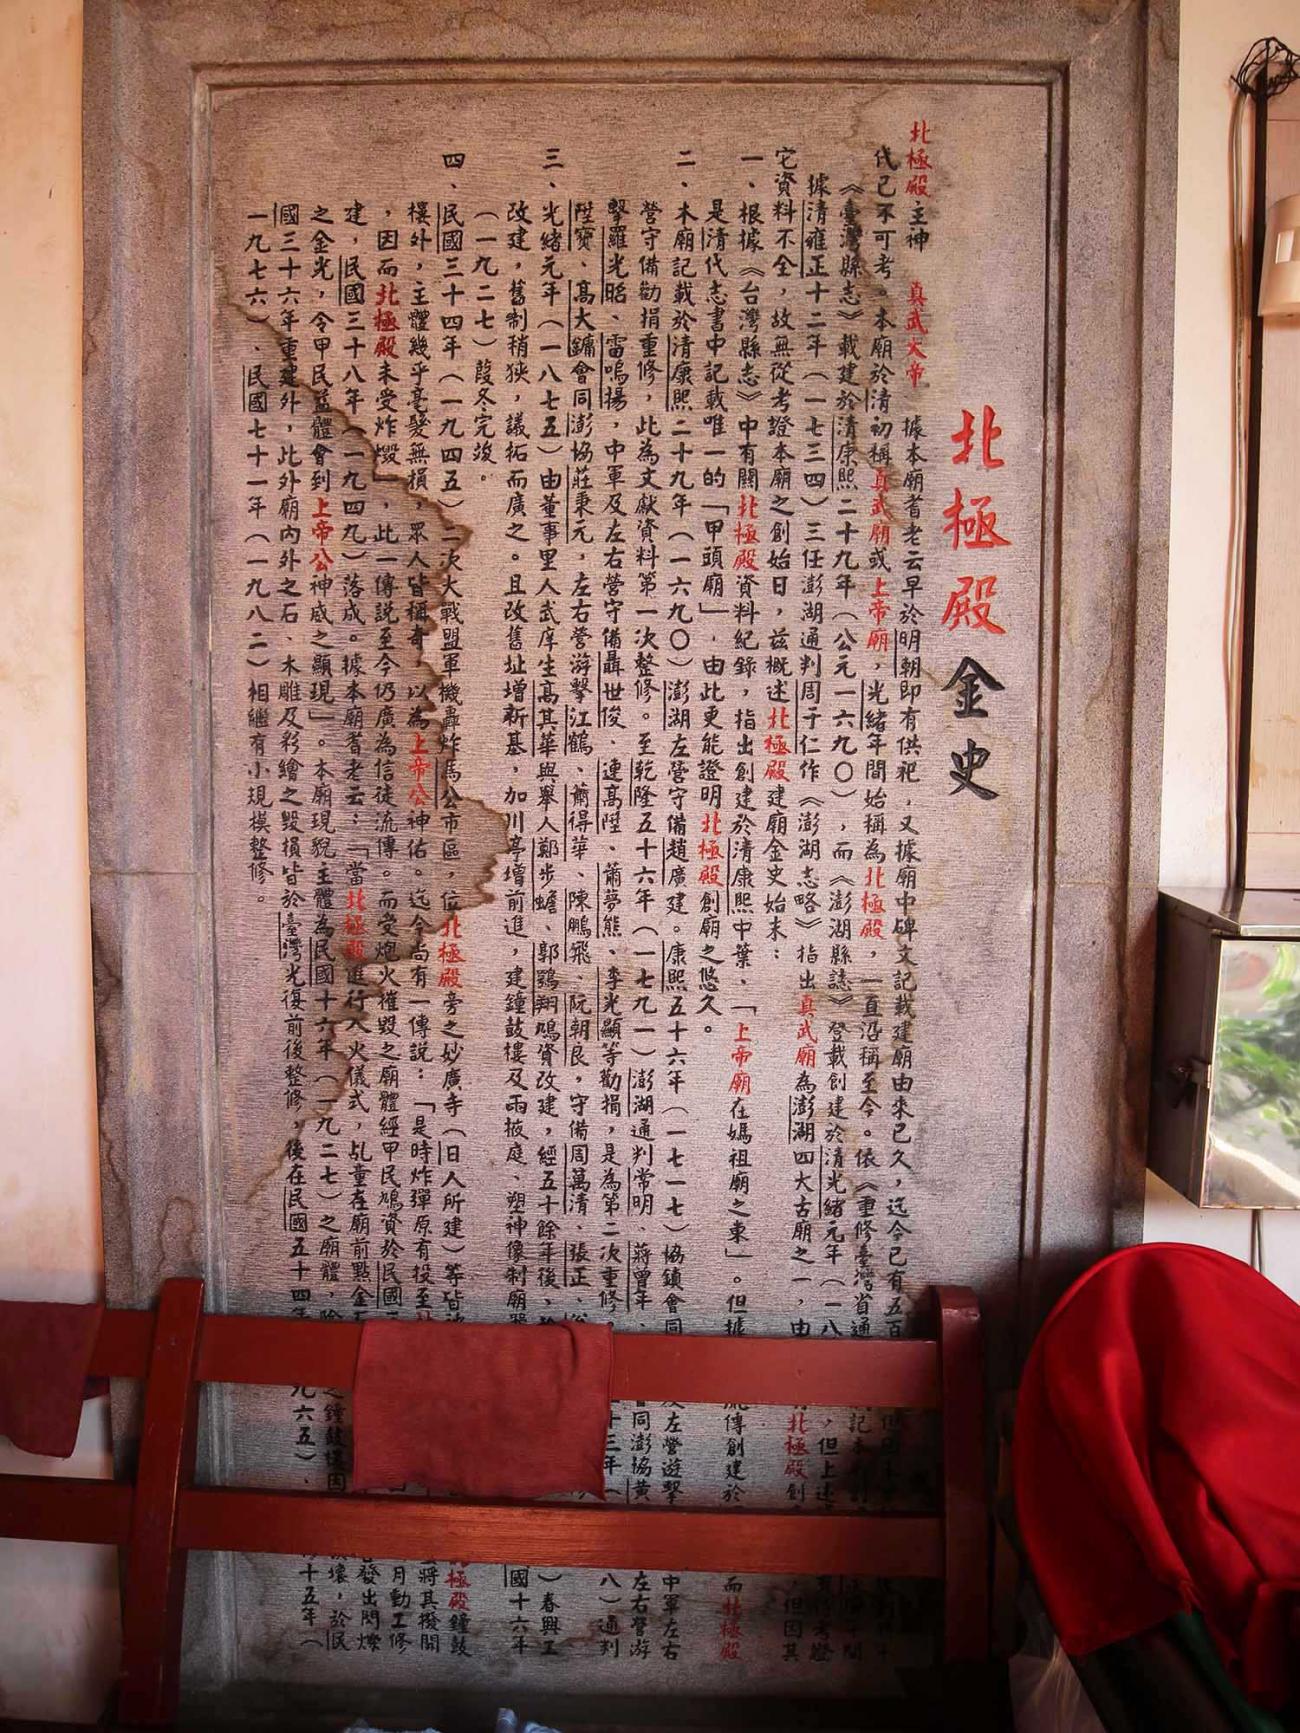 北極殿金史
北極殿主神 真武大帝 據本廟耆老云早於明朝即有供祀，又據廟中碑文記載建廟由來已久，迄今已有五百
代已不可考。本廟於清初稱真武廟或上帝廟，光緒年間始稱為北極殿，一直沿稱至今。依《重修臺灣省通
《臺灣縣志》載建於清康熙二十九年（公元一六九〇），而《澎湖縣誌》登載創建於清光緒元年（一八
據清雍正十二年（一七三四）三任澎湖通判周于仁作《澎湖志略》指出真武廟為澎湖四大古廟之一，由
它資料不全，故無從考證本廟之創始日，茲概述北極殿建廟金史始末：
一、根據《台灣縣志》中有關北極殿資料紀錄，指出創建於清康熙中葉、「上帝廟在媽祖廟之東」。但據 流傳創建於 而北極殿
是清代志書中記載唯一的「甲頭廟」，由此更能證明北極殿創廟之悠久。
二、本廟記載於清康熙二十九年（一六九〇）澎湖左營守備趙廣建。康熙五十六年（一七一七）協鎮會同 及左營遊擊 中軍左右
營守備勸捐重修，此為文獻資料第一次整修。至乾隆五十六年（一七九一）澎湖通判常明、蔣曾年、 會同澎協黃 左右營游
擊羅光昭、雷鳴揚，中軍及左右營守備聶世俊、連高陞、蕭夢熊、李光顯等勸捐，是為第二次重修。 十三年（ 八）通判
陞寶、高大鏞會同澎協莊秉元，左右營游擊江鶴、蕭得華、陳鵬飛、阮朝良，守備周萬清、張正、
三、光緒元年（一八七五）由董事里人武庠生高其華與舉人鄭步蟾、郭鶚翔鳩資改建，經五十餘年後、 ）春興工
改建，舊制稍狹，議拓而廣之。且改舊址增新基，加川亭增前進，建鐘鼓樓及兩掖庭、塑神像制廟器 國十六年
（一九二七）葭冬完竣。
四、民國三十四年（一九四五）二次大戰盟軍機轟炸馬公市區，位北極殿旁之妙廣寺（日人所建）等皆 北極殿鐘鼓
樓外，主體幾乎毫髮無損，眾人皆稱奇，以為上帝公神佑。迄今尚有一傳說：「是時炸彈原有投至 將其撥開
，因而北極殿未受炸燬」，此一傳說至今仍廣為信徒流傳。而受炮火摧毀之廟體經甲民鳩資於民國三 月動工修
建，民國三十八年（一九四九）落成。據本廟耆老云：「當北極殿進行入火儀式，乩童在廟前點金 發出閃爍
之金光，令甲民益體會到上帝公神威之顯現」。本廟現貌主體為民國十六年（一九二七）之廟體，除 之鐘鼓樓因 損壞，於民
國三十六年重建外，此外廟內外之石、木雕及彩繪之毀損皆於臺灣光復前後整修，後在民國五十四年 九六五）、 十五年（
一九七六）、民國七十一年（一九八二）相繼有小規模整修。